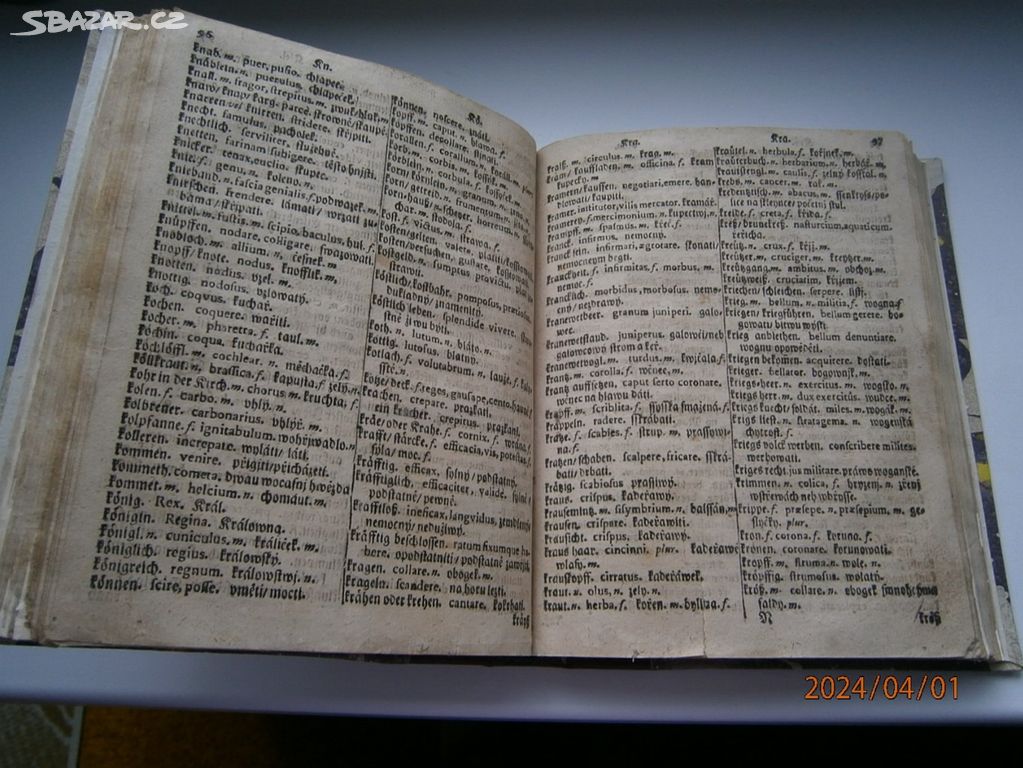 SBAZAR.CZ
96
Kn.
knab. m. puer, pusio, chlapec.
knäblein. n. puerulus. chlapeček.
knall. m. fragor, strepitus. m. zwuk/hluk. m.
knaw/knap/karg. parcè. skrowně/skaupě
knarren vel knirren. stridere. skřjpěti.
knecht. famulus, pacholek.
knechtlich. serviliter. služebně.
knetten. farinam subigere. těsto hnjsti.
knicker. tenax, euclin. skupec.
knie. f. genu. n. koleno. n.
knieband. n. fascia genialis. f. podwazek. m.
knirschen. frendere. lámati/wrzati zu-
bama/skřjpati.
knittel. m. fustis. m. scipio, baculus, hul. f.
knüpffen. nodare, colligare. swazowati
knobloch. m. allium. n. česnek. m
knopff/knote. nodus. knofljk. m.
knotten. nodus. uzel. m.
knottig. nodosus. uzlowatý.
koch. coquus. kuchař.
kochen. coquere. wařiti.
kocher. m. pharetra. f. taul. m.
köchin. coqua. kuchařka.
kochlöffl. m. cochlear. n. měchačka. f.
köllkraut. n. brassica. f. kapusta. f. zelý. n.
kohr in der Kirch. m. chorus. m. kruchta. f.
kolen. f. carbo. m. vhlý. n.
kolbrener. carbonarius. vhljř. m.
kolpfanne. f. ignitabulum. wohřjwadlo. n
kolleren. increpare. wyláti/láti.
kommen. venire. přigjti/přicházeti.
kometh. cometa. dwau wocasý hwězda
kommet. m. helcium. n. chomaut. m.
könig. Rex. Král.
königin. Regina. Králowna.
königl. n. cuniculus. m. králiček. m.
königlich. regius. králowský.
königreich. regnum. králowstwj. n.
können. scire, posse. vměti/mocti.
Kö.
können, noscere. znáti.
kopff. m. caput. n. hlawa. f.
köpffen. decollare. stjnati.
korb. m. corbis. m. koš. m.
körblein. n. corbula. f. košjček. m
kost. f. victus. m. strawa. f.
kosten/gelten. valere. platiti/
kosten/versuchen. gustare.
kostgeld. n. sumptus
strawu.
köstlich/kostbahr. pomposus, præciosus
dukladný/znamenitý.
köstlich leben. splendide vivere. skwo-
stně ži wu býti.
koth. n. lutum. n. bláto. n.
kottig. lutosus. blatný.
kotlach. f. volutabrum. n. lauže. f. kalo-
sstě. n.
krachen. crepare. prazkati.
ein kracher. crepitus. prazkanj.
kräe/oder Krahe. f. cornix. f. wrána. f.
krafft/stärcke. f. efficacia, vis, potestas. f
syla/moc. f.
kräfftig. efficax, sylný/podstatný.
kräfftiglich. efficaciter, validè. sylně/
podstatně/pewně.
krafftloß. ineficax, langvidus, zemdlenj
nemocný/nedužiwý.
kräfftig beschlossen. ratum fixumque ha-
bere. opodstatniti/podstatně zawřjti
kragen. collare. n. obogek. m.
krageln. scandere. na horu lezti.
krähen oder krehen. cantare. kokrhati.
kräß
Krg.
Kra.
97
kraiß. m. circulus. m. krag. m.
kram/kauffladen. m. officina. f. kram
kupecký. m.
kramern/kauffen. negotiari, emere. han-
dlowati/kaupiti.
kramer. institutor, vilis mercator. kramář.
kramerey. f. mercimonium. n. kupectwj. n.
krampff. m. spasmus. m. křeč. f.
kranck. infirmus. nemocný.
kranck sein. infirmari, ægrotare. stonati/
nemocnym býti.
kranckheit. f. infirmitas. f. morbus. m.
nemoc. f.
krancklich. morbidus, morbosus. nemo-
cný/nezdrawý.
kranewetbeer. granum juniperi. galo-
wec.
kranewetstaud. juniperus. galowčj/neb
galowcowý strom a keř.
kranewetvogl. m. turdus. m. kwjčala. f.
krantz. m. corolla. f. wěnec. m.
krantz auffsetzen. caput serto coronare.
wěnec na hlawu dáti.
krapff. m. scriblita. f. ssysska smažená. f.
krappeln. radere. sskrábati.
kratze. f. scabies. f. strup. m. prassywi-
na. f.
kratzen/schaben. scalpere, fricare. sskrá-
bati/drbati.
krätzig. scabiosus prassiwý.
kraus. crispus. kadeřawý.
krausemintz. m. sisymbrium. n. balssán. m.
krausen. crispare. kadeřawiti.
krausicht. crispus. kadeřawý.
kraus haar. cincinni. plur. kadeřawé
wlasy. m.
krauskopff. cirratus. kadeřáwek.
kraut. n. olus. n. zelý. n.
kraut. n. herba. f. kořen. m. bylina. f.
kraütel. n. herbula. f. kořjnek. m.
kraüterbuch. n. herbarium. n. herbář. m.
krautstengl. m. caulis. f. zelný kosstial. m.
krebs. m. cancer. m. rak. m.
kredentztisch. m. abacus. m. ssenktyss/po-
lice na sklenice/početnj stul.
kreide. f. creta. f. křjda. f.
kreß/brunekreß. nasturcium, aquaticum
řeřicha.
kreütz. n. crux. f. křjž. m.
kreützer. m. cruciger. m. kreytzer. m.
kreützgang. m. ambitus. m. obchoz. m.
kreützweiß. cruciatim. křjžem.
kriechen/schleichen. serpere. ljsti.
krieg. m. bellum. n. militia. f. wogna. f
kriegen/kriegsführen. bellum gerere. bo-
gowati/bitwu wésti.
krieg anbiethen. bellum denuntiare.
wognu opowěděti.
kriegen bekomen. acquirere. dostati.
krieger. bellator. bogownjk. m.
kriegs heer. n. exercitus. m. wogsko. n.
kriegs herr. m. dux exercitus. wudce. m.
kriegs knecht/soldát. miles. m. wogák. m.
kriegs list. n. stratagema. n. wogenská
chytrost. f.
kriegs volck werben. conscribere milites.
werbowati.
kriegs recht. jus militare. práwo woganské.
krimmen. n. colica. f. hryzenj. n. zřenj
w střewách neb w břisse.
krippe. f. præsepe. n. præsepium. m. ge-
slyčky. plur.
kron. f. corona. f. koruna. f.
krönen. coronare. korunowati.
kropff. m. struma. n. wole. n.
kröpffig. strumosus. wolatý.
kröß. m. collare. n. obogek s mnohýma
faldy. m.
N
kröß
2024/04/01